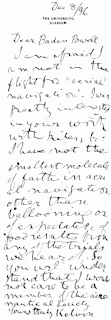 Dec 8/96
THE UNIVERSITY,
GLASGOW.
Dear Baden Powell
I am afraid I
am not in the
flight for "aerial
navigation". I was
greatly interested
in your work
with kites; but
I have not the
smallest molecule
of faith in aerial
navigation
other than
ballooning or
of expectation of
good results from
any of the trials
we hear of. So
you will under-
stand that I would
not care to be a
member of the aëro-
nautical Society.
Yours truly Kelvin